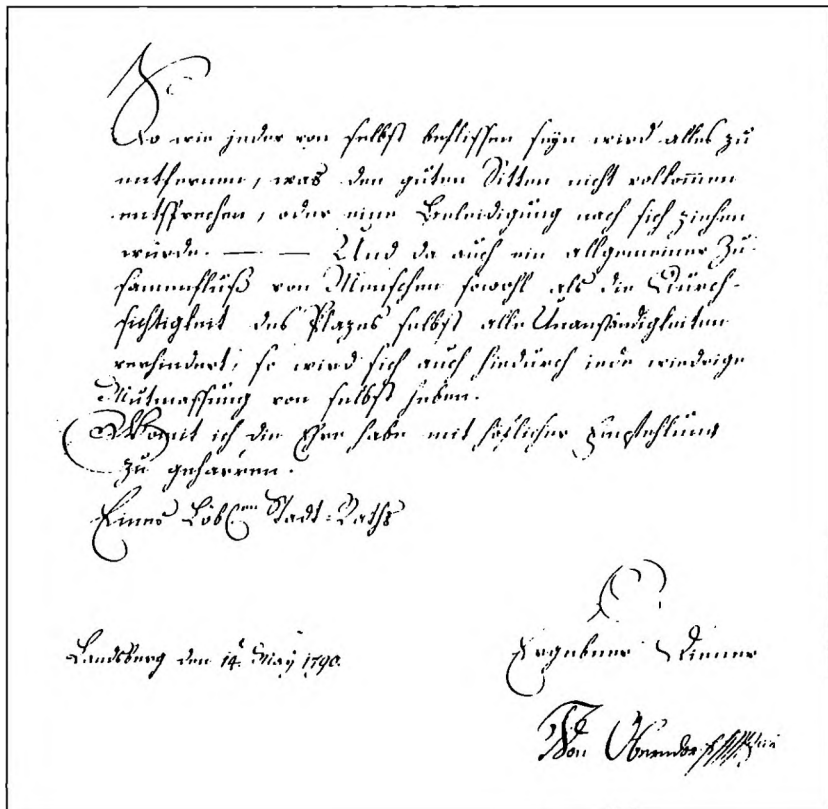 So wie jeder von selbst beflissen seyn wird alles zu
entfernen, was den guten Sitten nicht vollkommen
entsprechen, oder eine Beleidigung nach sich ziehen
würde. — — Und da auch ein allgemeiner Zu-
sammenfluß von Menschen sowohl als die Durch-
sichtigkeit des Plazes selbst alle Unanständigkeiten
verhindert, so wird sich auch hiedurch jede wiedrige
Mutmassung von selbst heben.
Womit ich die Ehre habe mit höflicher Empfehlung
zu geharren.
Eines Löbl:en Stadt-Raths
Landsberg den 14t. May 1790.
Ergebner Diener
Von Oberndorff